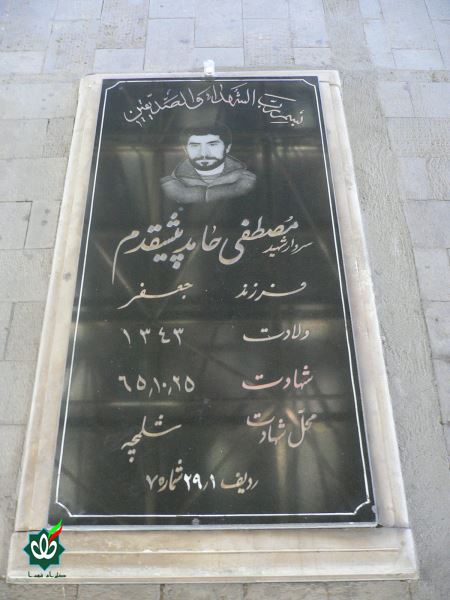 بسم رب الشهداء والصدیقین
سردار شهید مصطفی حامد پیشقدم
فرزند جعفر
ولادت ۱۳۴۳
شهادت ۶۵٫۱۰٫۲۵
محل شهادت شلمچه
ردیف ۲۹٫۱ شماره ۷